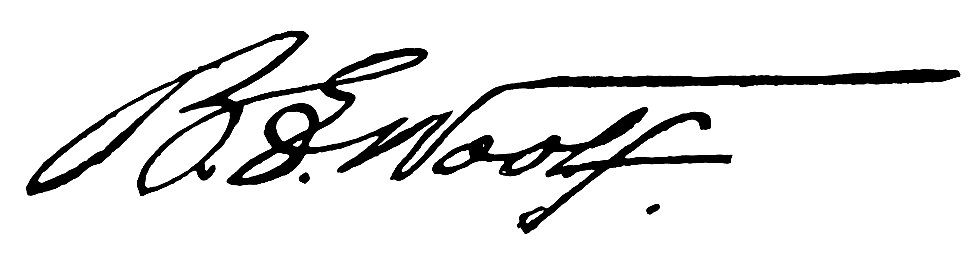 B. E. Woolf.